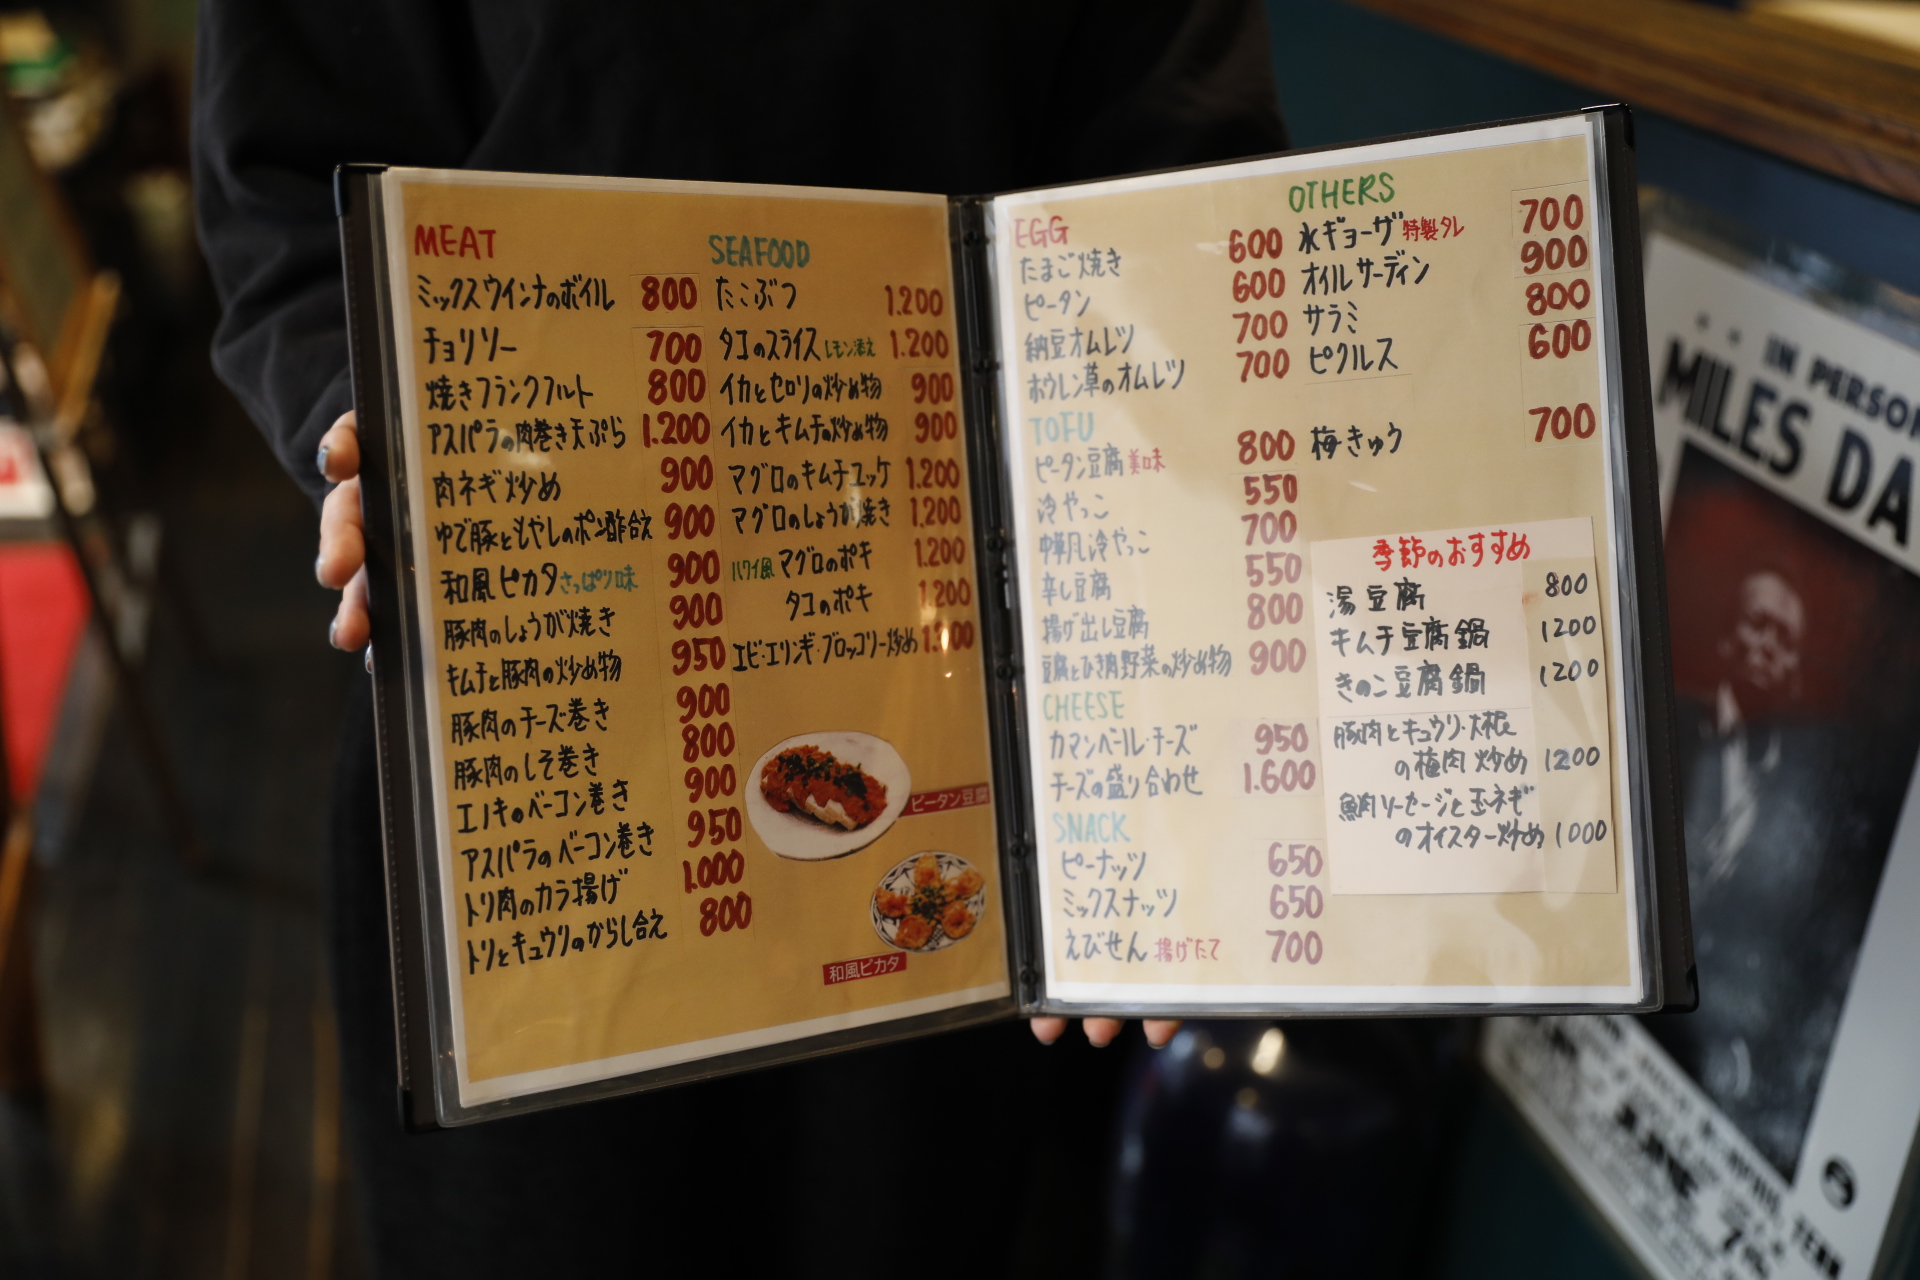 MEAT
ミックスウインナのボイル 800
チョリソー 700
焼きフランクフルト 800
アスパラの肉巻き天ぷら 1.200
肉ネギ炒め 900
ゆで豚ともやしのポン酢合え 900
和風ピカタ さっぱり味 900
豚肉のしょうが焼き 900
キムチと豚肉の炒め物 950
豚肉のチーズ巻き 900
豚肉のしそ巻き 800
エノキのベーコン巻き 900
アスパラのベーコン巻き 950
トリ肉のカラ揚げ 1.000
トリとキュウリのからし合え 800
SEAFOOD
たこぶつ 1.200
タコのスライス レモン添え 1.200
イカとセロリの炒め物 900
イカとキムチの炒め物 900
マグロのキムチユッケ 1.200
マグロのしょうが焼き 1.200
ハワイ風 マグロのポキ 1.200
タコのポキ 1.200
エビ・エリンギ・ブロッコリー炒め
ピータン豆腐
和風ピカタ
EGG
たまご焼き 600
ピータン 600
納豆オムレツ 700
ホウレン草のオムレツ 700
TOFU
ピータン豆腐 美味 800
冷やっこ 550
中華風冷やっこ 700
辛し豆腐 550
揚げ出し豆腐 800
豆腐とひき肉野菜の炒め物 900
CHEESE
カマンベール・チーズ 950
チーズの盛り合わせ 1.600
SNACK
ピーナッツ 650
ミックスナッツ 650
えびせん 揚げたて 700
OTHERS
水ギョーザ 特製タレ 700
オイルサーディン 900
サラミ 800
ピクルス 600
梅きゅう 700
季節のおすすめ
湯豆腐 800
キムチ豆腐鍋 1200
きのこ豆腐鍋 1200
豚肉とキュウリ・大根
の梅肉炒め 1200
魚肉ソーセージと玉ネギ
のオイスター炒め 1000
IN PERSON
MILES DA